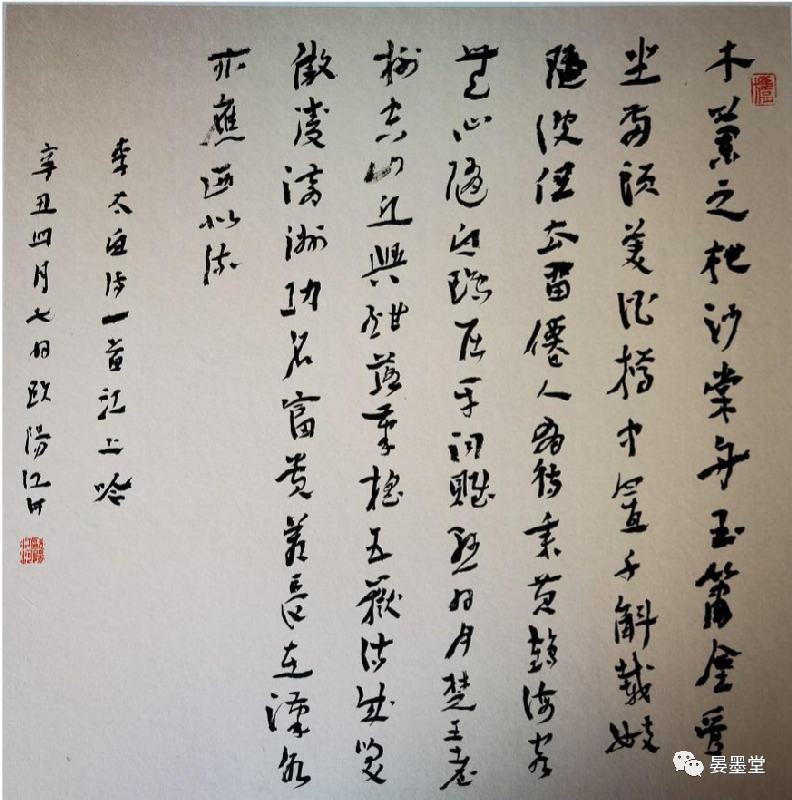 木蘭之枻沙棠舟玉簫金管
坐兩頭美酒樽中置千斛載妓
隨波任去留僊人有待乘黃鶴海客
無心隨白鷗屈平詞賦懸日月楚王臺
榭空山丘興酣落筆搖五嶽詩成笑
傲凌滄洲功名富貴若長在漢水
亦應西北流
李太白詩一首江上吟
辛丑四月七日歐陽江河
晏墨堂